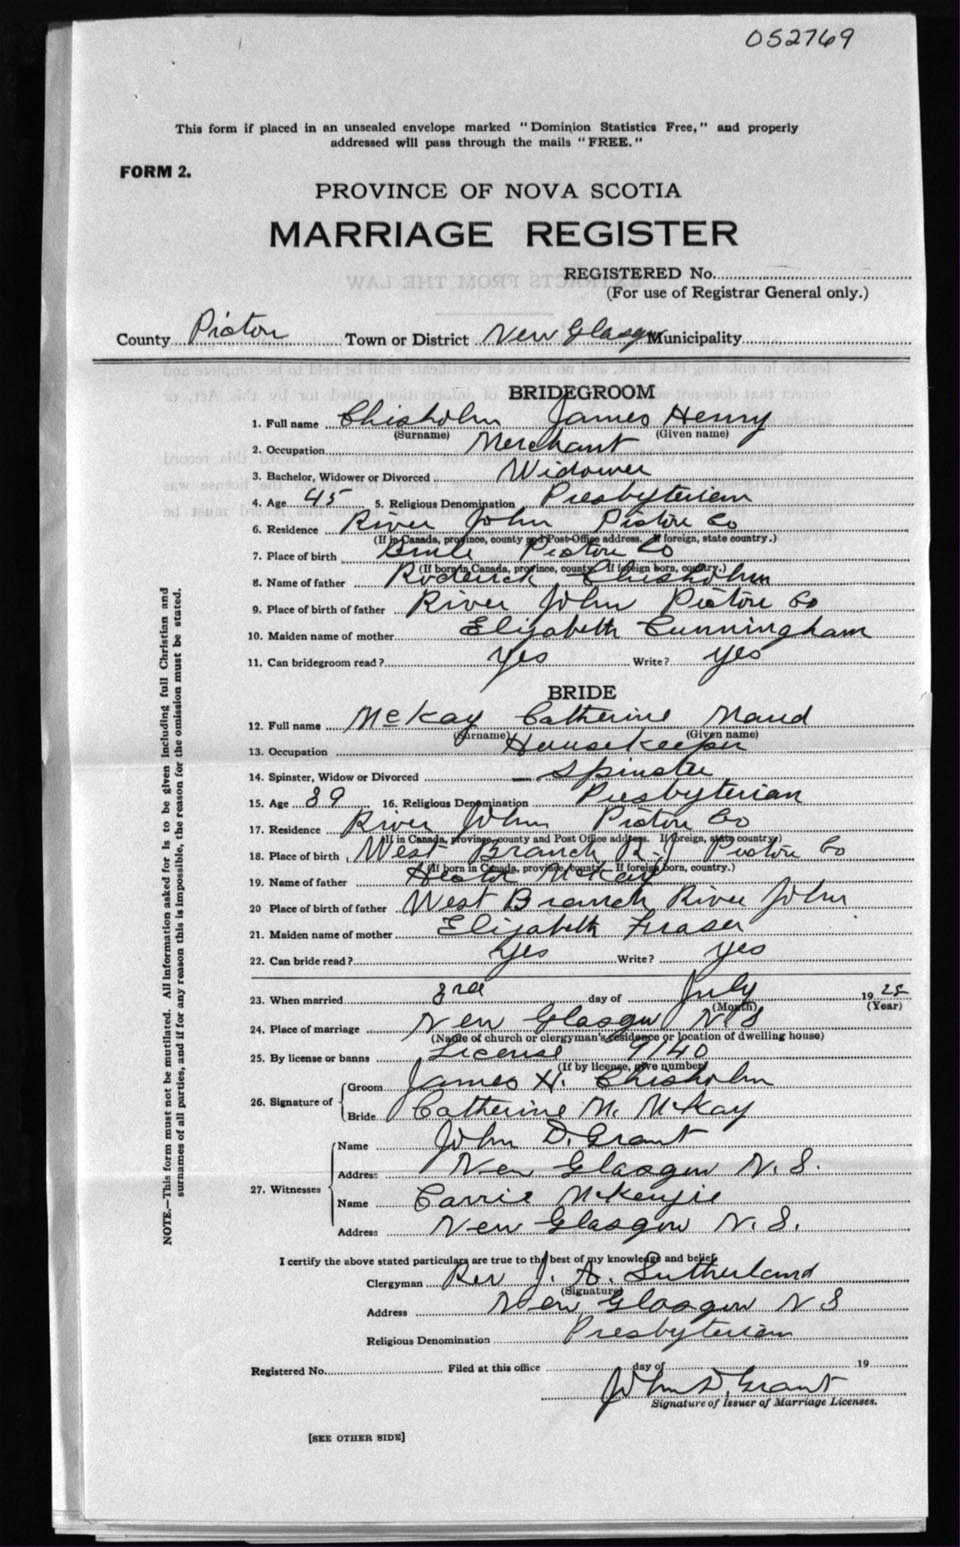 052769
This form if placed in an unsealed envelope marked "Dominion Statistics Free," and properly
addressed will pass through the mails "FREE."
FORM 2.
PROVINCE OF NOVA SCOTIA
MARRIAGE REGISTER
REGISTERED No.
(For use of Registrar General only.)
County Pictou Town or District New Glasgow Municipality
BRIDEGROOM
1. Full name Chisholm James Henry
(Surname) (Given name)
2. Occupation Merchant
3. Bachelor, Widower or Divorced Widower
4. Age 45 5. Religious Denomination Presbyterian
6. Residence River John Pictou Co
(If in Canada, province, county and Post-Office address. If foreign, state country.)
7. Place of birth Pictou Co
(If born in Canada, province, county. If foreign born, country.)
8. Name of father Roderick Chisholm
9. Place of birth of father River John Pictou Co
10. Maiden name of mother Elizabeth Cunningham
11. Can bridegroom read? Yes Write? Yes
BRIDE
12. Full name McKay Catherine Maud
(Surname) (Given name)
13. Occupation Housekeeper
14. Spinster, Widow or Divorced Spinster
15. Age 39 16. Religious Denomination Presbyterian
17. Residence River John Pictou Co
(If in Canada, province, county and Post Office address. If foreign, state country.)
18. Place of birth West Branch R. J Pictou Co
(If born in Canada, province, county. If foreign born, country.)
19. Name of father Hector McKay
20 Place of birth of father West Branch River John
21. Maiden name of mother Elizabeth Fraser
22. Can bride read? Yes Write? Yes
23. When married 3rd day of July 1925
(Month) (Year)
24. Place of marriage New Glasgow N S
(Name of church or clergyman's residence or location of dwelling house)
25. By license or banns License 9140
(If by license, give number)
26. Signature of Groom James H. Chisholm
Bride Catherine M. McKay
27. Witnesses Name John D. Grant
Address New Glasgow N. S.
Name Carrie McKenzie
Address New Glasgow N. S.
I certify the above stated particulars are true to the best of my knowledge and belief.
Clergyman Rev J. A. Sutherland
(Signature)
Address New Glasgow N S
Religious Denomination Presbyterian
Registered No. Filed at this office day of 19
John D. Grant
Signature of Issuer of Marriage Licenses.
[SEE OTHER SIDE]
NOTE.—This form must not be mutilated. All information asked for is to be given including full Christian and
surnames of all parties, and if for any reason this is impossible, the reason for the omission must be stated.